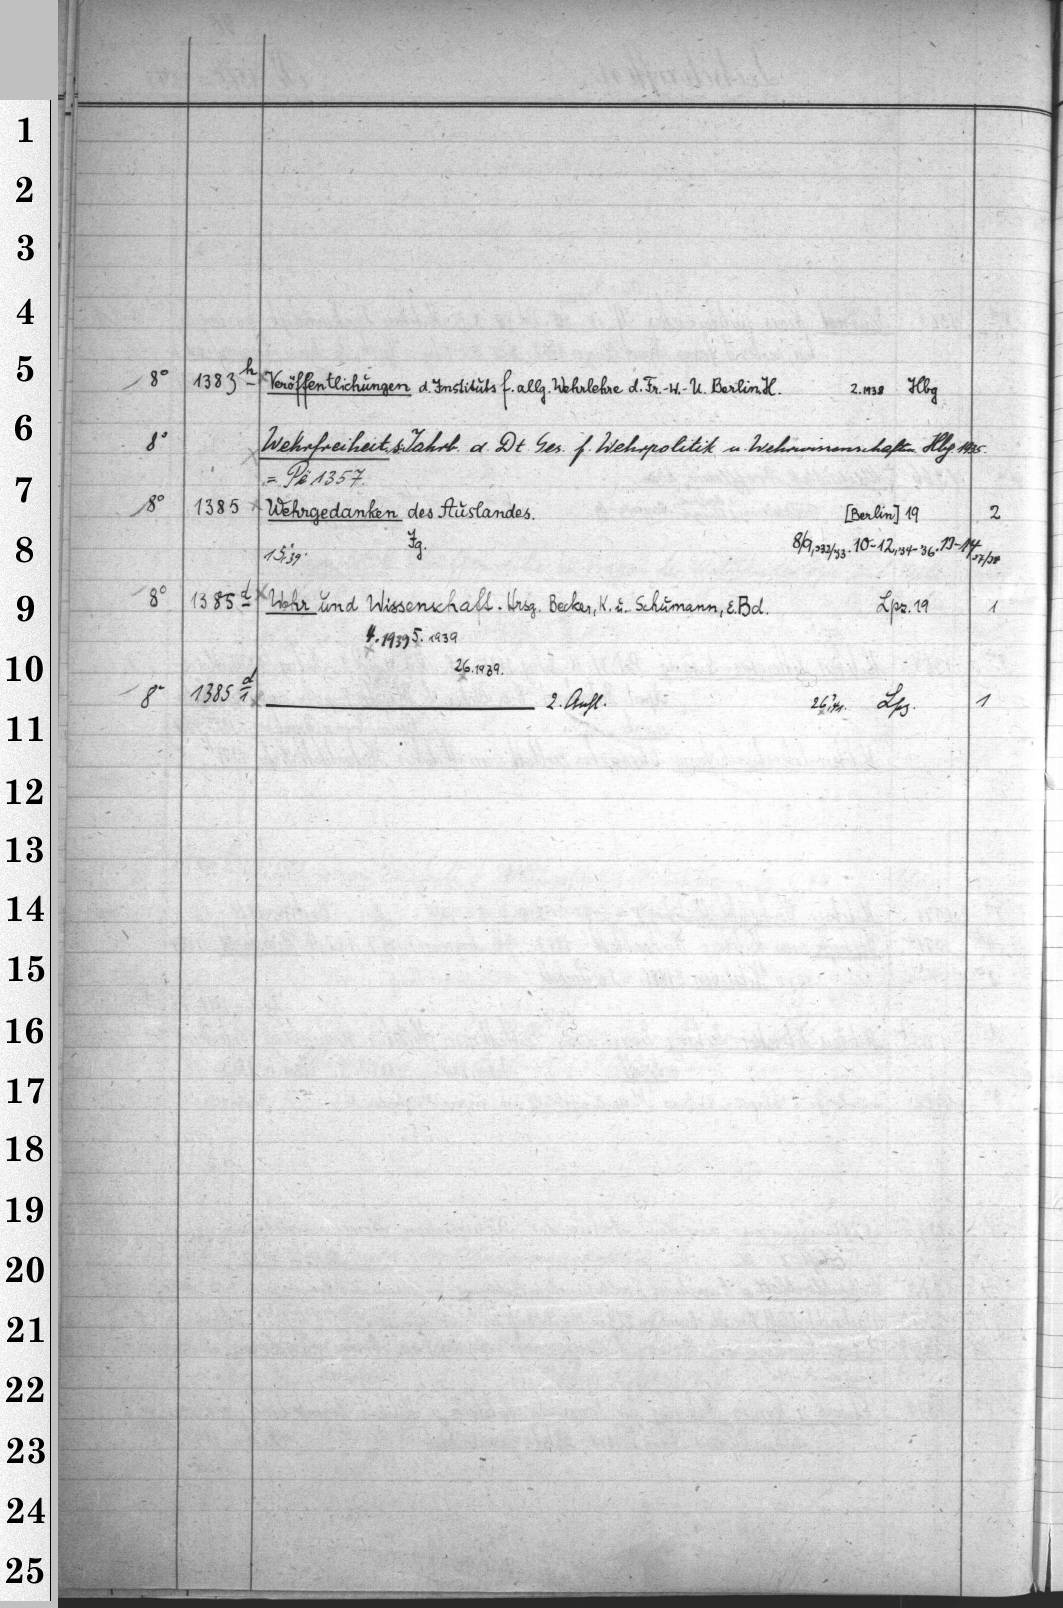 1
2
3
4
5
8° 1383 h Veröffentlichungen d. Instituts f. allg. Wehrlehre d. Fr.-W.-U. Berlin. H. 2.1938 Hbg
6
8° Wehrfreiheit. Jahrb. d. Dt Ges. f. Wehrpolitik u. Wehrwissenschaften Hbg. 1935.
= 1357.
7
8° 1385 Wehrgedanken des Auslandes. [Berlin] 19 2
8
15.'39. Jg. 8/9,'32/'33. 10-12,'34-'36. 13-14,'37/'38
9
8° 1385 d Wehr und Wissenschaft. Hrsg. Becker, K. u. Schumann, E. Bd. Lpz. 19 1
4.1939 5.1939
10
26.1939.
8° 1385 d/1 2. Aufl. 26 Lpz. 1
11
12
13
14
15
16
17
18
19
20
21
22
23
24
25